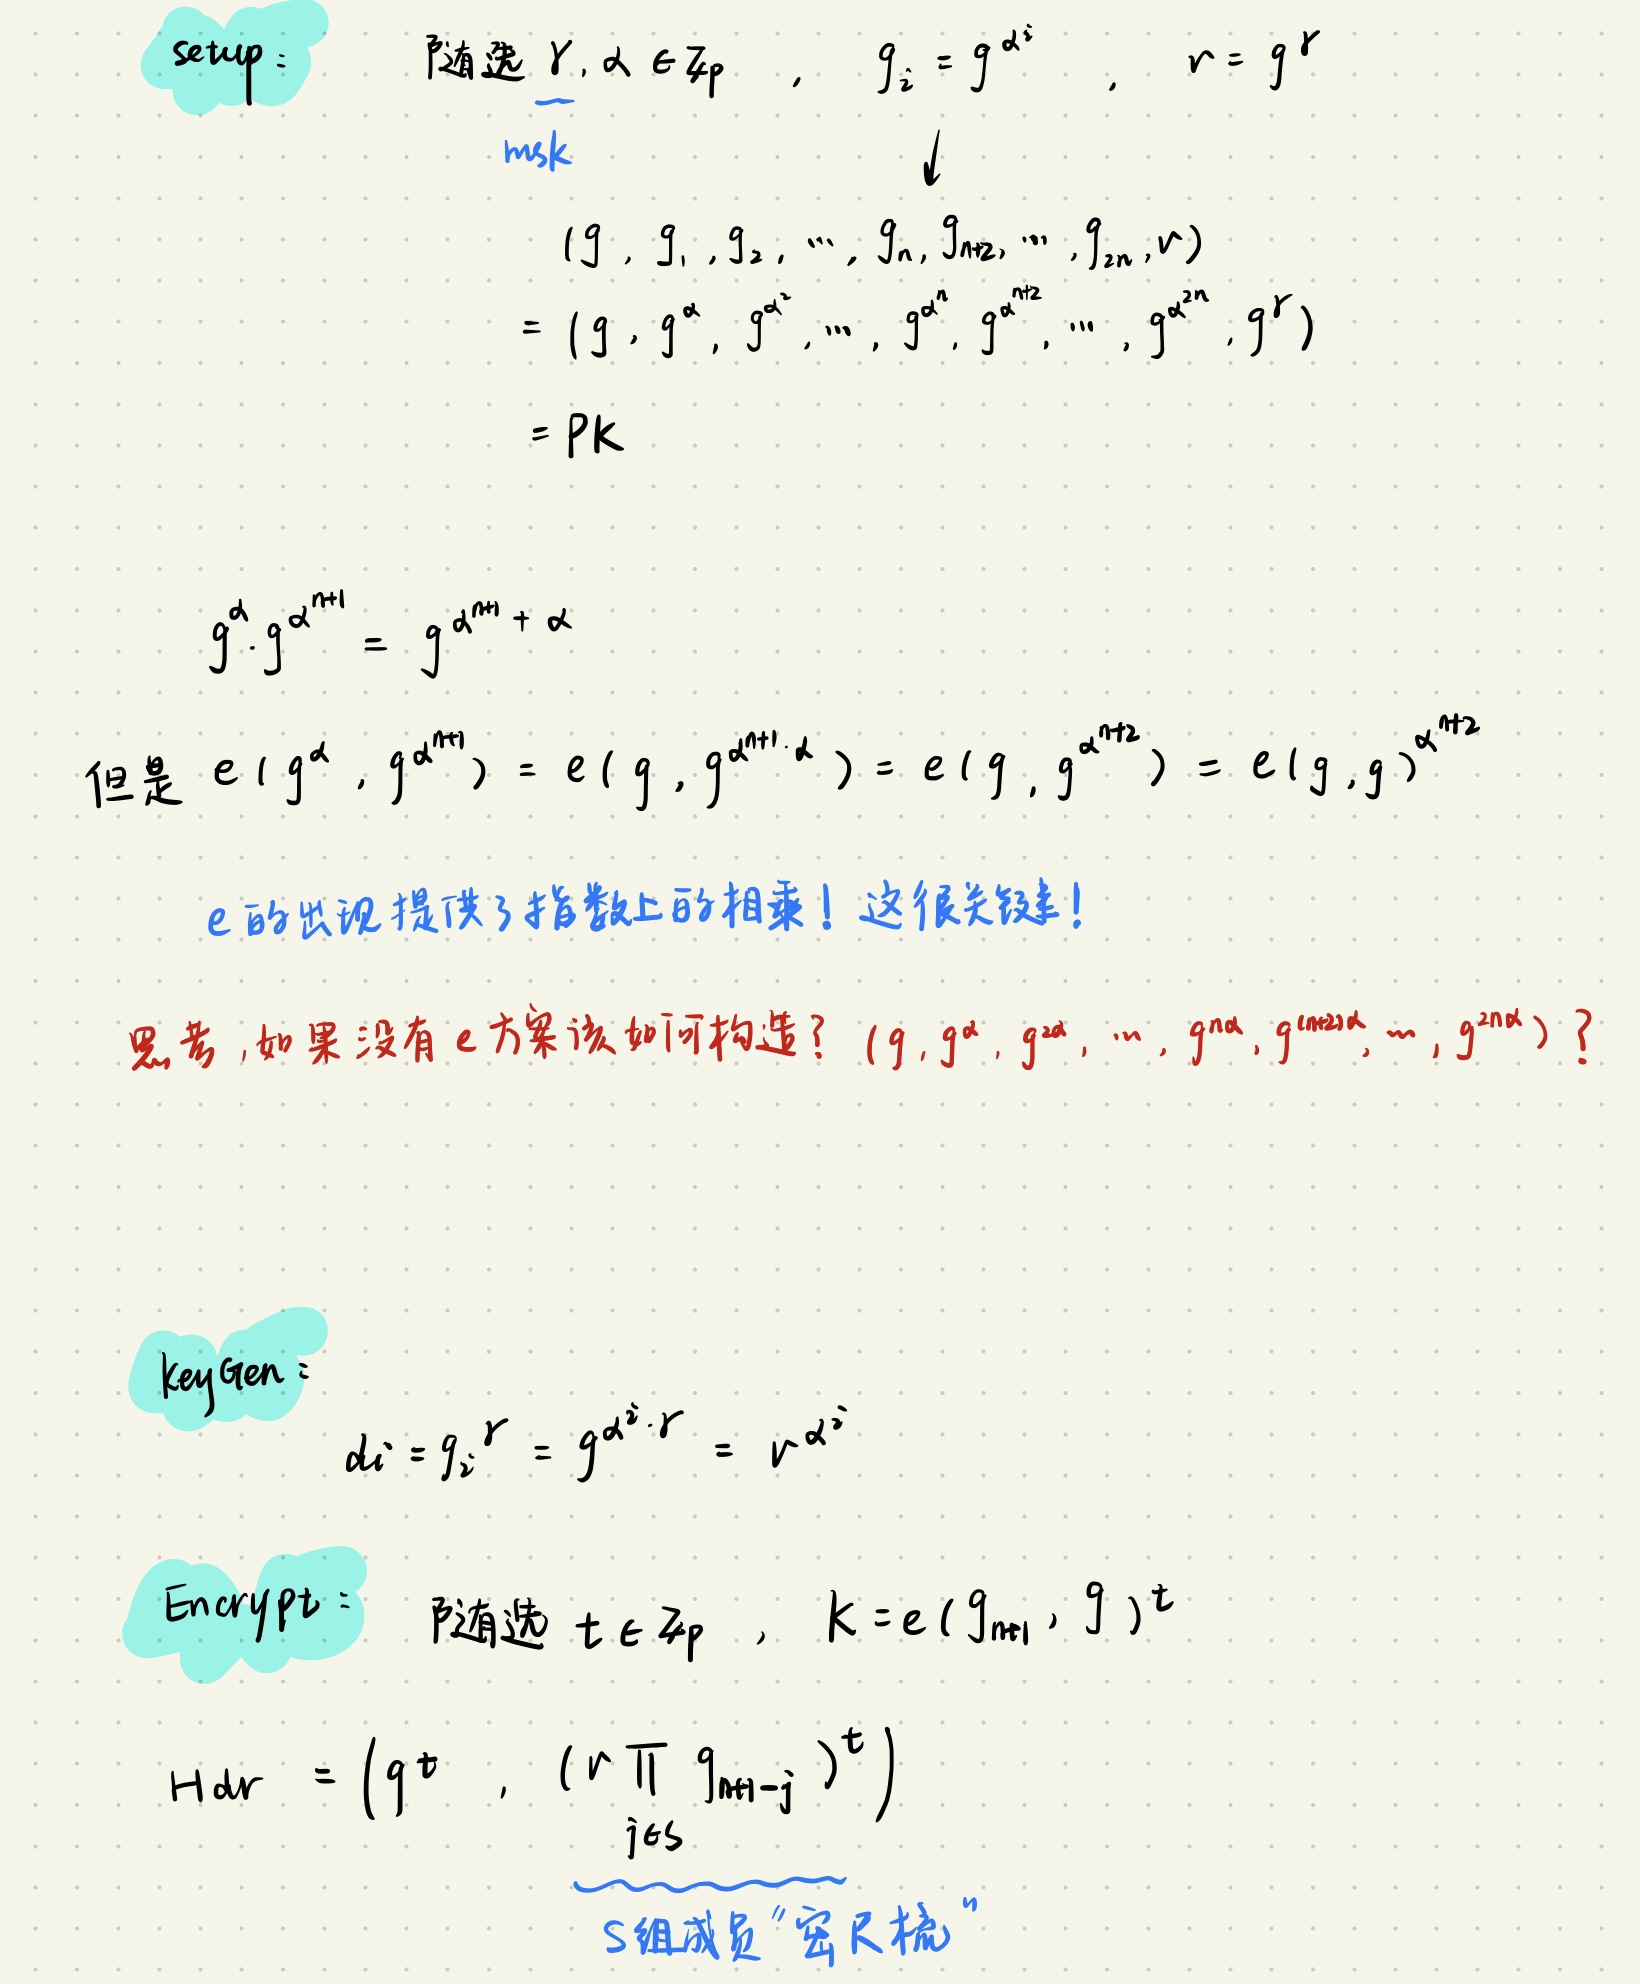 setup: 随选 γ, α ∈ Zp , gᵢ = g^{α^i} , v = g^γ
msk ↓
(g, g₁, g₂, …, gₙ, gₙ₊₂, …, g₂ₙ, v)
= (g, g^α, g^{α^2}, …, g^{α^n}, g^{α^{n+2}}, …, g^{α^{2n}}, g^γ)
= PK
g^α · g^{α^{n+1}} = g^{α^{n+1} + α}
但是 e(g^α, g^{α^{n+1}}) = e(g, g^{α^{n+1}·α}) = e(g, g^{α^{n+2}}) = e(g, g)^{α^{n+2}}
e的出现提供了指数上的相乘！这很关键！
思考，如果没有e方案该如何构造？(g, g^α, g^{2α}, …, g^{nα}, g^{(n+2)α}, …, g^{2nα})？
KeyGen:
di = gᵢ^γ = g^{α^i·γ} = v^{α^i}
Encrypt: 随选 t ∈ Zp , K = e(gₙ₊₁, g)^t
Hdr = (g^t , (v ∏_{j∈S} g_{n+1-j})^t)
S组成员"密尺梳"